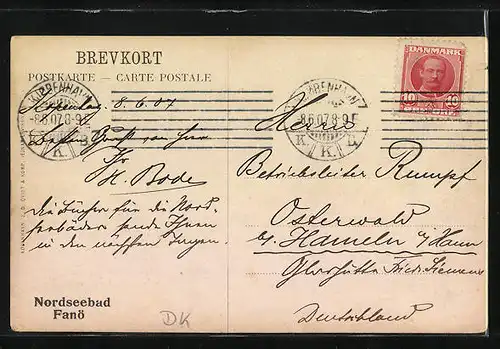 BREVKORT
POSTKARTE — CARTE POSTALE
DANMARK
10 10
KJØBENHAVN
8.6.07. 8-9 F.
K. K. B.
KJØBENHAVN
8.6.07. 8-9 F.
K. K. B.
Kopenhag. 8.6.07
Besten Gruß von hier
Ihr
H. Bode
Die Bücher für die Nord-
seebäder sende Ihnen
in den nächsten Tagen.
Herrn
Betriebsleiter Rumpf
Osterwald
bz. Hameln a/Hann
Glashütte Fried. Siemens
Deutschland
Nordseebad
Fanö
DK